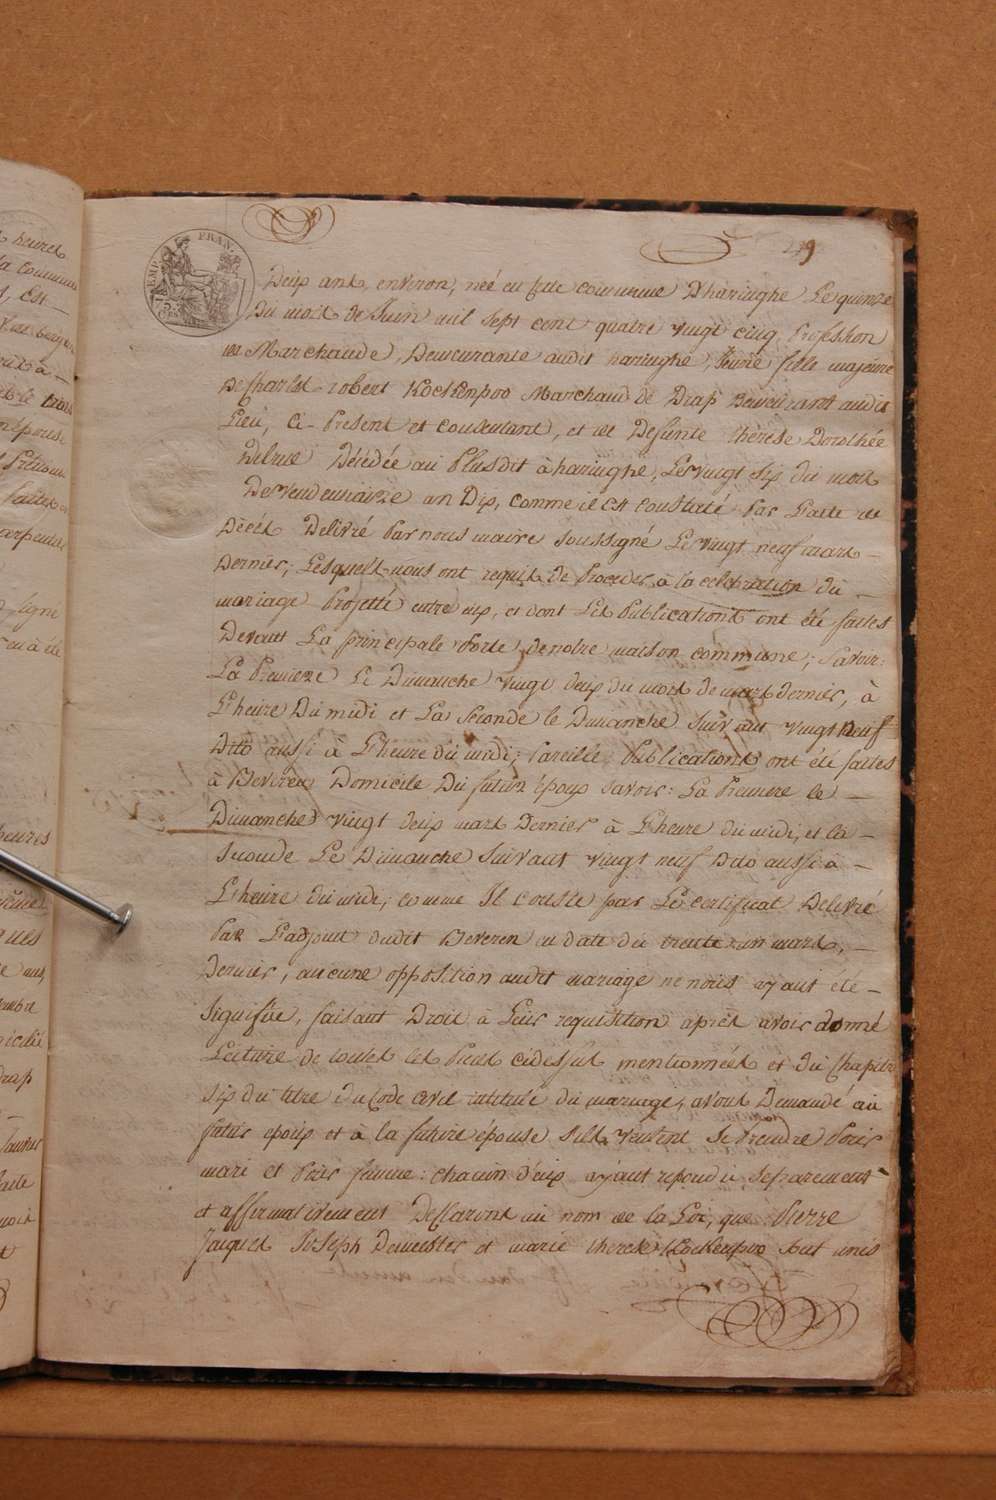 249
EMP. FRAN.
Deux ans environ, née en cette commune D'haringhe Le quinze
Du mois de Juin mil sept cent quatre vingt cinq, Profession
de Marchande, Demeurante audit haringhe, fille majeure
De Charles robert Kockenpoo Marchand de Drap Demeurant audit
Lieu, Ci-Present et Consentant, et de Defunte thérese Dorothée
Delrue Décédée au Plusdit à haringhe, Le vingt six du mois
De Vendemiaire an Dix, comme il est constaté Par L'acte de
Décés Delivré Par nous maire soussigné Le vingt neuf mars
Dernier; Lesquels nous ont requis de Proceder à la celebration du
mariage Projetté entre eux, et dont Les Publications ont été faites
Devant La principale Porte de notre maison commune; savoir:
La Premiere Le Dimanche vingt deux du mois de mars dernier, à
L'heure Du midi et La Seconde le Dimanche suivant vingt neuf
Dito aussi à L'heure du midi; Pareilles Publications ont été faites
à Beveren Domicile Du futur époux savoir: La Premiere le
Dimanche vingt deux mars Dernier à L'heure du midi, et la
Seconde Le Dimanche suivant vingt neuf Dito aussi à
L'heure du midi, comme Il conste par Le Certificat Delivré
Par L'adjoint dudit Beveren en date du trente un mars
Dernier, aucune opposition audit mariage ne nous ayant été
Signifiée, faisant Droit à Leur requisition après avoir donné
Lecture de toutes les Pieces cidessus mentionnées et du Chapitre
Six du titre du Code civil intitulé du mariage, avons Demandé au
futur epoux et à la future épouse s'ils veulent se Prendre Pour
mari et Pour femme: chacun d'eux ayant repondu separement
et affirmativement Declarons au nom de la Loi, que Pierre
Jacques Joseph Demeester et marie therese Kockenpoo sont unis